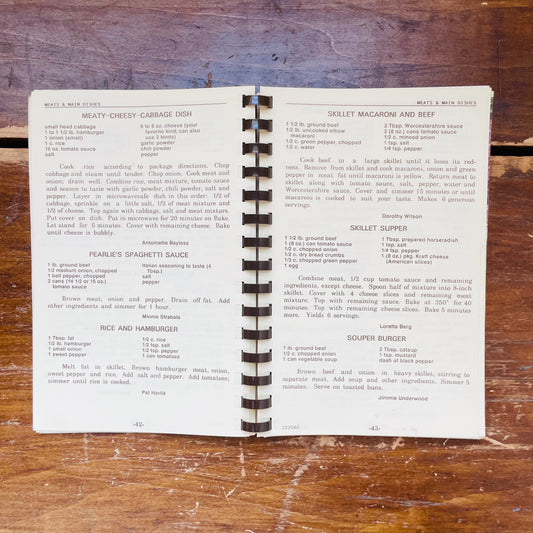 MEATS & MAIN DISHES
MEATY-CHEESY-CABBAGE DISH
small head cabbage
1 to 1 1/2 lb. hamburger
1 onion (small)
1 c. rice
15 oz. tomato sauce
6 to 8 oz. cheese (your
favorite kind, can also
use 2 kinds)
garlic powder
chili powder
salt
pepper
Cook rice according to package directions. Chop
cabbage and steam until tender. Chop onion. Cook meat and
onion; drain well. Combine rice, meat mixture, tomato sauce
and season to taste with garlic powder, chili powder, salt and
pepper. Layer in microwavesafe dish in this order: 1/2 of
cabbage, sprinkle on a little salt, 1/2 of meat mixture and
1/2 of cheese. Top again with cabbage, salt and meat mixture.
Put cover on dish. Put in microwave for 20 minutes on Bake.
Let stand for 5 minutes. Cover with remaining cheese. Bake
until cheese is bubbly.
Antoinette Bayless
PEARLIE'S SPAGHETTI SAUCE
1 lb. ground beef
1/2 medium onion, chopped
1 bell pepper, chopped
2 cans (14 1/2 or 15 oz.)
tomato sauce
Italian seasoning to taste (4
Tbsp.)
salt
pepper
Brown meat, onion and pepper. Drain off fat. Add
other ingredients and simmer for 1 hour.
Minnie Strabala
RICE AND HAMBURGER
1 Tbsp. fat
1 lb. hamburger
1 small onion
1 sweet pepper
1/2 c. rice
1/2 tsp. salt
1/2 tsp. pepper
1 can tomatoes
Melt fat in skillet. Brown hamburger meat, onion,
sweet pepper and rice. Add salt and pepper. Add tomatoes;
simmer until rice is cooked.
Pat Havlik
-42-
MEATS & MAIN DISHES
SKILLET MACARONI AND BEEF
1 1/2 lb. ground beef
1/2 lb. uncooked elbow
macaroni
1/2 c. green pepper, chopped
1/2 c. water
2 Tbsp. Worcestershire sauce
2 (8 oz.) cans tomato sauce
1/2 c. minced onion
1 tsp. salt
1/4 tsp. pepper
Cook beef in a large skillet until it loses its red-
ness. Remove from skillet and cook macaroni, onion and green
pepper in meat fat until macaroni is yellow. Return meat to
skillet along with tomato sauce, salt, pepper, water and
Worcestershire sauce. Cover and simmer 25 minutes or until
macaroni is cooked to suit your taste. Makes 6 generous
servings.
Dorothy Wilson
SKILLET SUPPER
1 1/2 lb. ground beef
1 (8 oz.) can tomato sauce
1/2 c. chopped onion
1/2 c. dry bread crumbs
1/3 c. chopped green pepper
1 egg
1 Tbsp. prepared horseradish
1 1/2 tsp. salt
1/4 tsp. pepper
1 (8 oz.) pkg. Kraft cheese
(American slices)
Combine meat, 1/2 cup tomato sauce and remaining
ingredients, except cheese. Spoon half of mixture into 8-inch
skillet. Cover with 4 cheese slices and remaining meat
mixture. Top with remaining sauce. Bake at 350° for 40
minutes. Top with remaining cheese slices. Bake 5 minutes
more. Yields 6 servings.
Loretta Berg
SOUPER BURGER
1 lb. ground beef
1/2 c. chopped onion
1 can vegetable soup
2 Tbsp. catsup
1 tsp. mustard
dash of black pepper
Brown beef and onion in heavy skillet, stirring to
separate meat. Add soup and other ingredients. Simmer 5
minutes. Serve on toasted buns.
Jimmie Underwood
-43-